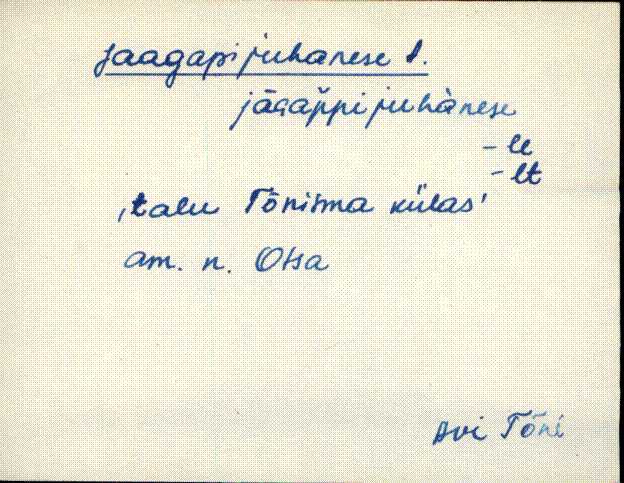 Jaagapijuhanese t.
jāGap̆pijuhànese
- le
- lt
‚talu Tõnisma külas’
am. n. Otsa
Avi Tõni